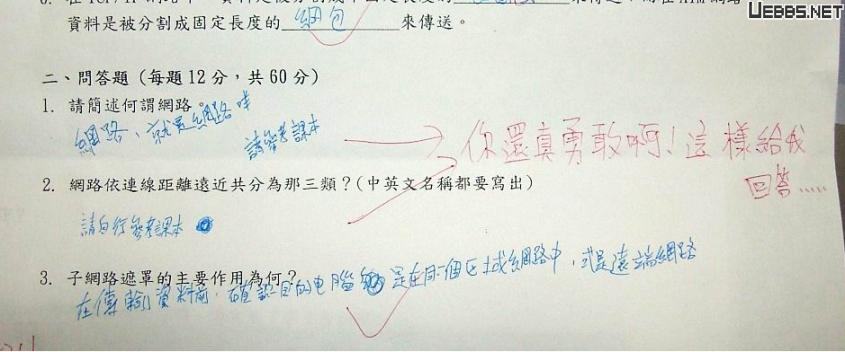 UEBBS.NET
資料是被分割成固定長度的 網包 來傳送。
二、問答題（每題12分，共60分）
1. 請簡述何謂網路。
網路、就是網路咩
請參考課本
你還真勇敢啊！這樣給我
回答.....
2. 網路依連線距離遠近共分為那三類？(中英文名稱都要寫出)
請自行參考課本
3. 子網路遮罩的主要作用為何？
在傳輸資料前，確認目的电腦 是在同一個区域網路中，或是遠端網路